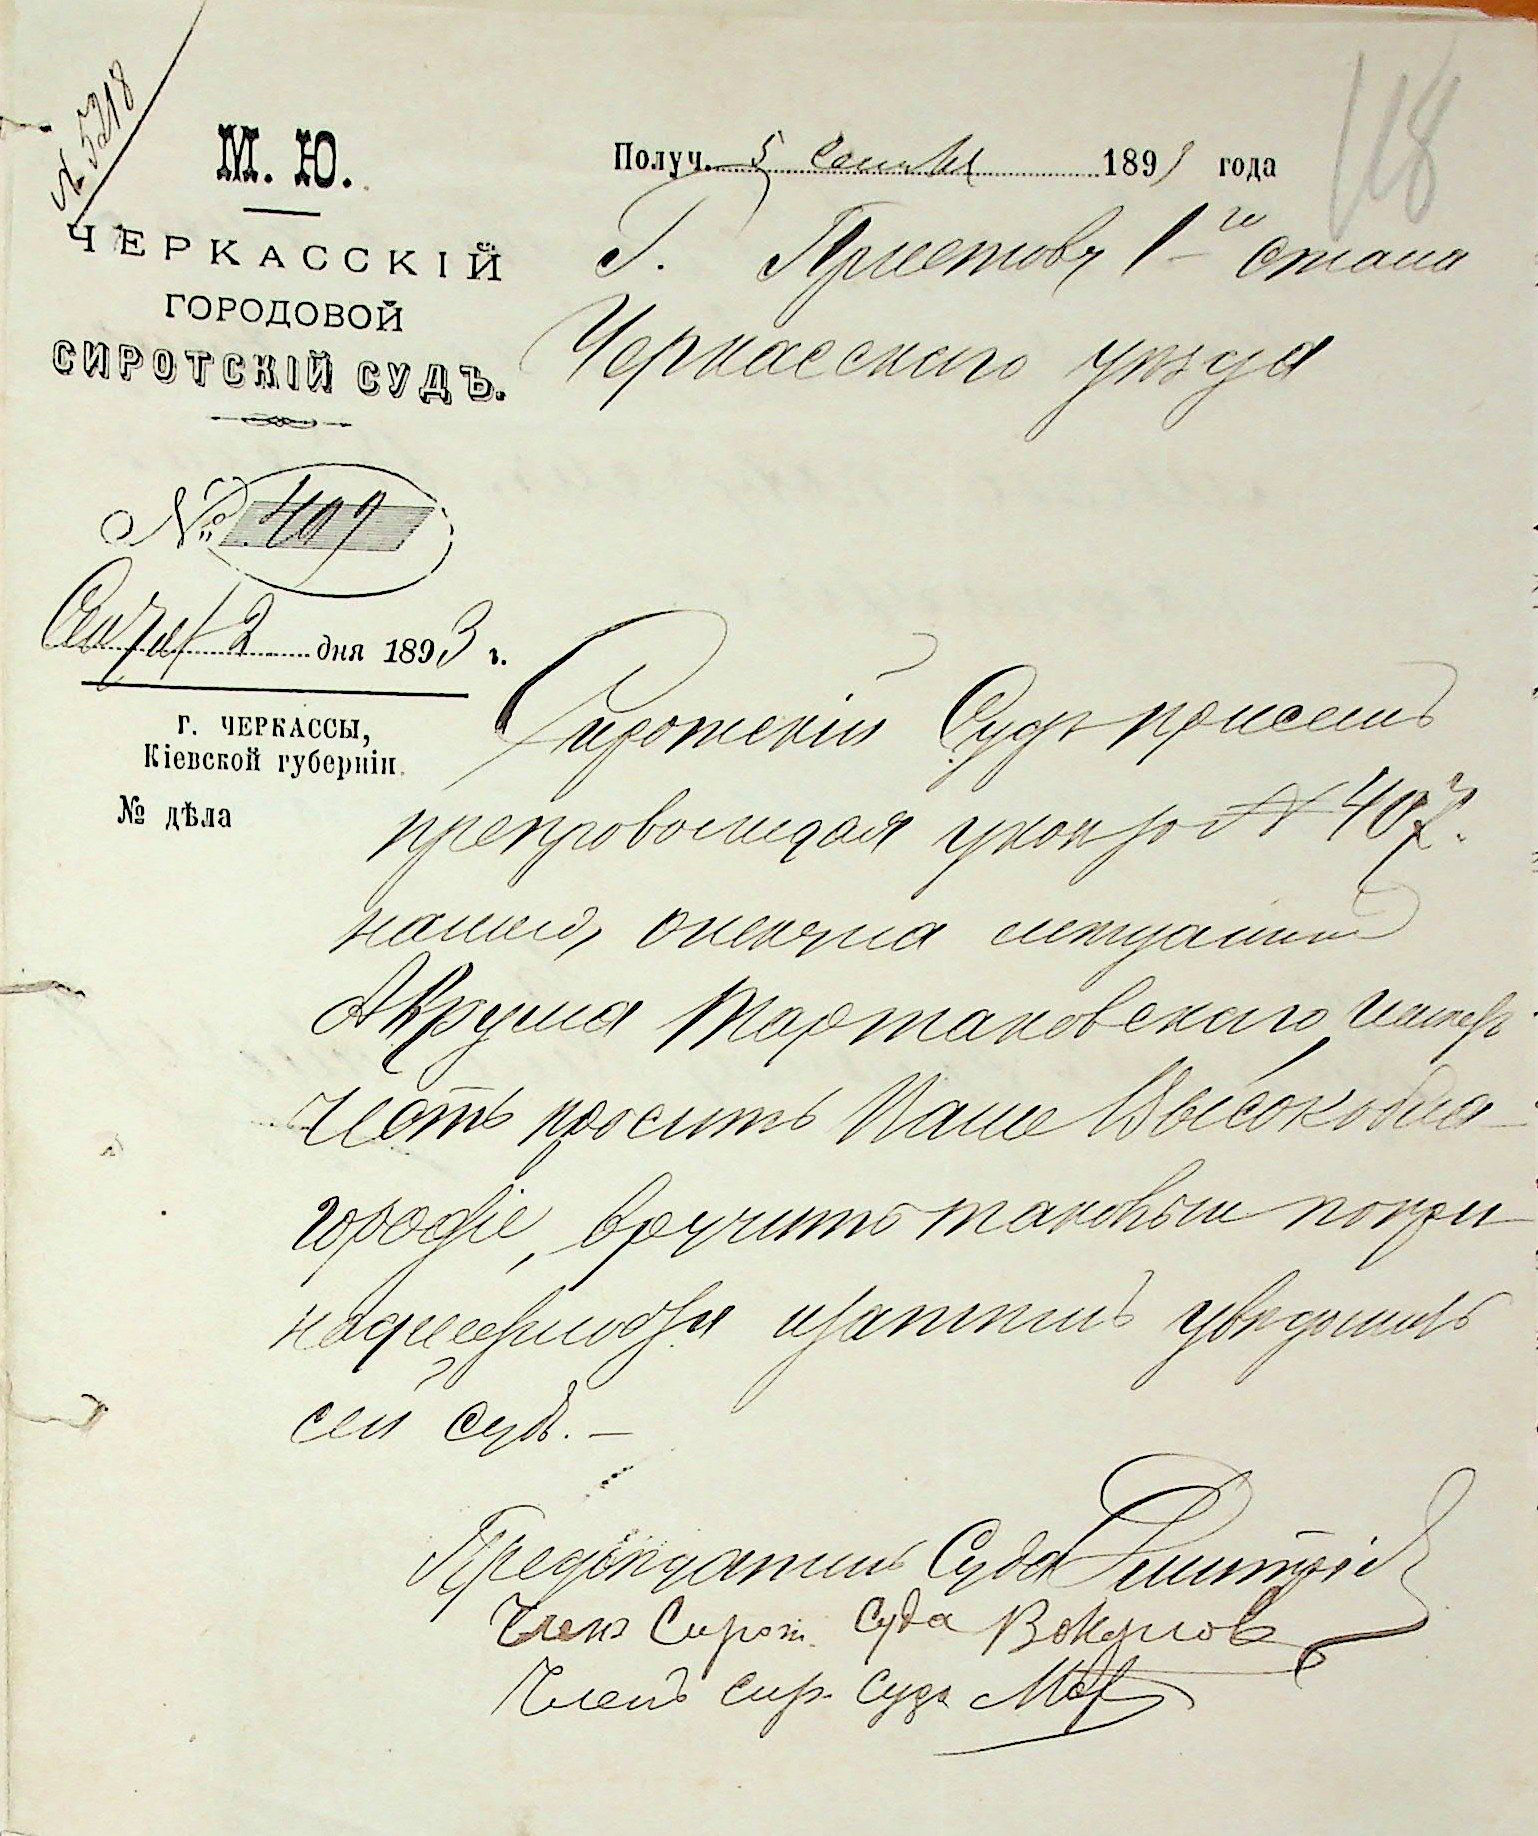 № 5218
118
М. Ю.
ЧЕРКАССКІЙ
ГОРОДОВОЙ
СИРОТСКІЙ СУДЪ.
№ 409
2 дня 1893 г.
г. ЧЕРКАССЫ,
Кіевской губерніи.
№ дѣла
Получ. 5 1893 года
Г. Приставу 1го стана
Черкасскаго уѣзда
Сиротскій Судъ при семъ
препровождая указ за № 407.
на имя, опекуна
Аврума Тартаковскаго, имеетъ
честь просить Ваше Высокобла-
городіе, вручить таковый по при
надлежности и увѣдомить
сей судъ. —
Предсѣдатель Суда
Членъ Сирот. Суда
Членъ сир. Суда